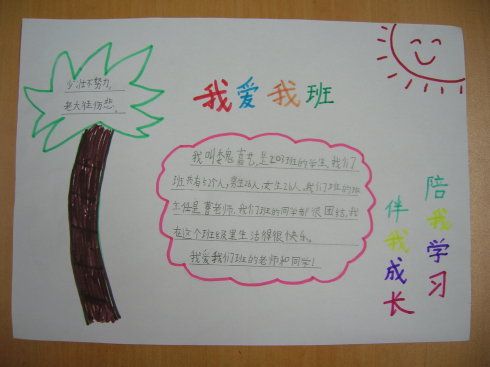 少壮不努力,
老大徒伤悲。
我爱我班
我叫魏嘉艺,是203班的学生,我们
班共有52个人,男生26人,女生26人。我们班的班
主任是曹老师。我们班的同学都很团结,我
在这个班级里生活得很快乐。
我爱我们班的老师和同学!
陪我学习
伴我成长